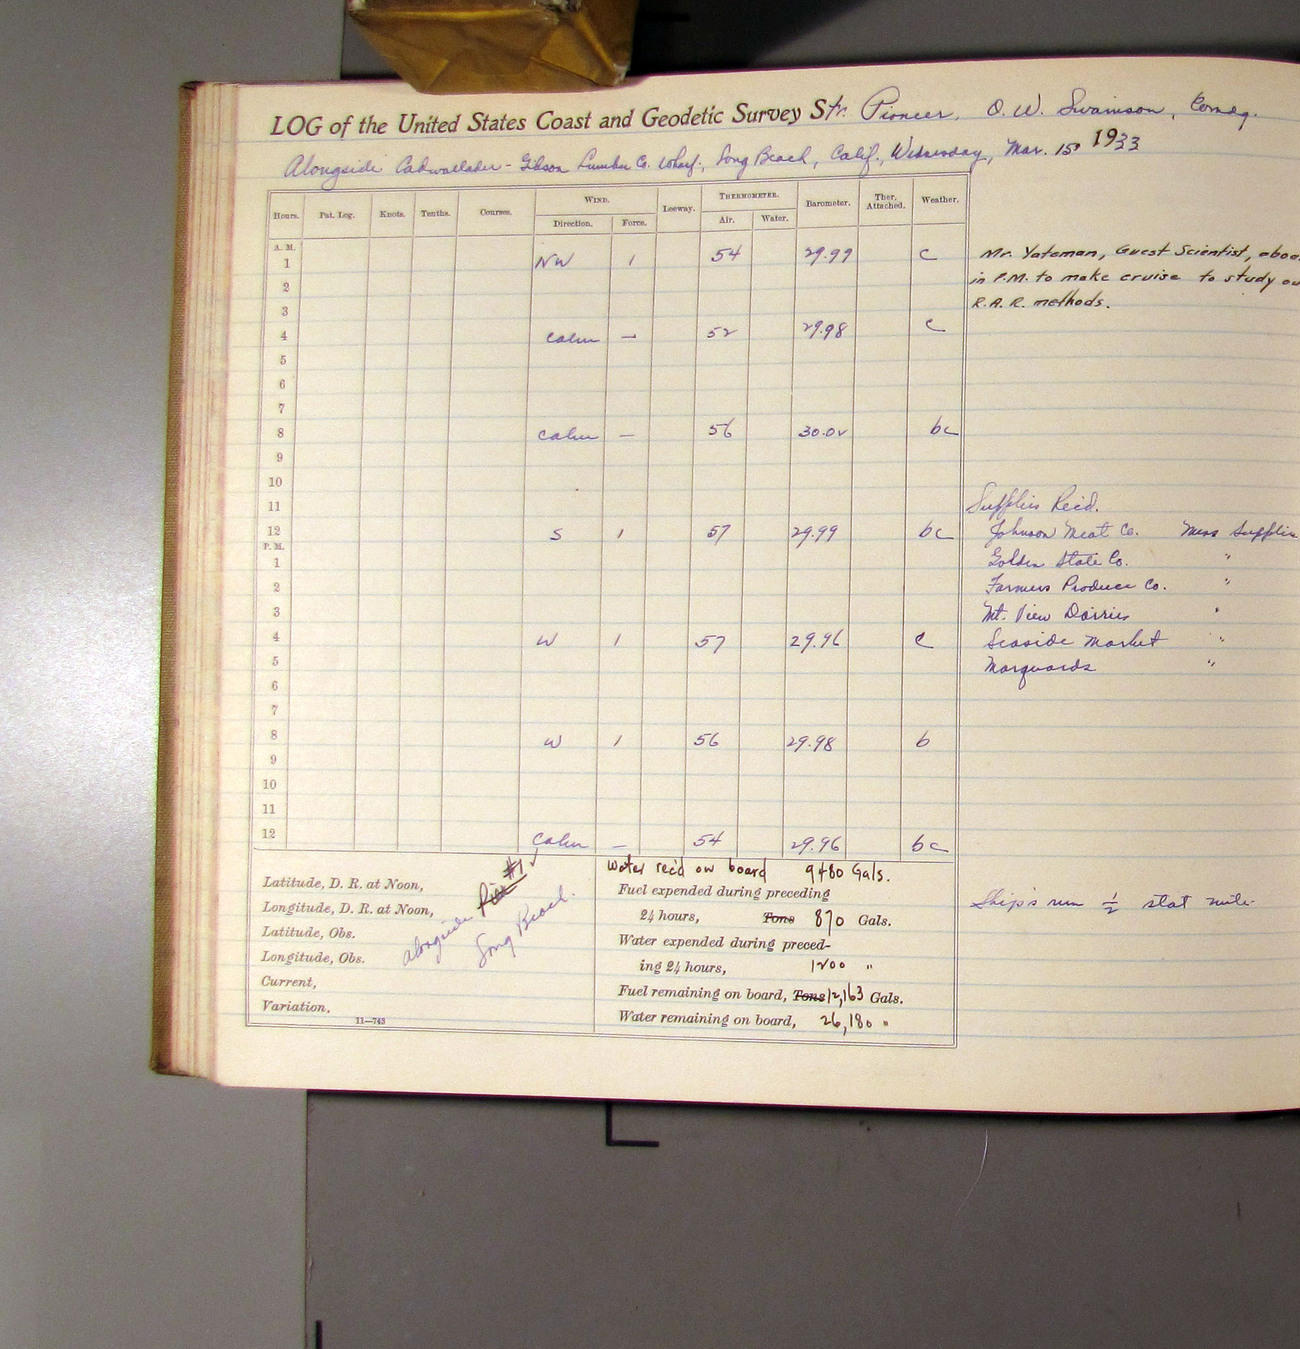 LOG of the United States Coast and Geodetic Survey Str. Pioneer, O. W. Swainson, Comdg.
Alongside Cadwallader-Gibson Lumber Co. Wharf, Long Beach, Calif., Wednesday, Mar. 15, 1933
Hours. Pat. Log. Knots. Tenths. Courses. WIND. Leeway. THERMOMETER. Barometer. Ther. Attached. Weather.
Direction. Force. Air. Water.
A. M.
1 NW 1 54 29.99 c Mr. Yateman, Guest Scientist,
2 in P.M. to make cruise to study
3 R.A.R. methods.
4 Calm — 52 29.98 c
5
6
7
8 Calm — 56 30.02 bc
9
10
11 Supplies Recd.
12 S 1 57 29.99 bc Johnson Meat Co. Mess Supplies
P. M.
1 Golden State Co. "
2 Farmers Produce Co. "
3 Mt. View Dairies "
4 W 1 57 29.96 c Seaside Market "
5 Marquards "
6
7
8 W 1 56 29.98 b
9
10
11
12 Calm — 54 29.96 bc
Water rec'd on board 9480 Gals.
Latitude, D. R. at Noon,
Longitude, D. R. at Noon,
Latitude, Obs.
Longitude, Obs.
Current,
Variation,
alongside Pier #1 ✓
Long Beach.
11—743
Fuel expended during preceding
24 hours, Tons 870 Gals.
Water expended during preced-
ing 24 hours, 1200 "
Fuel remaining on board, Tons 12,163 Gals.
Water remaining on board, 26,180 "
Ship's run ½ stat mile